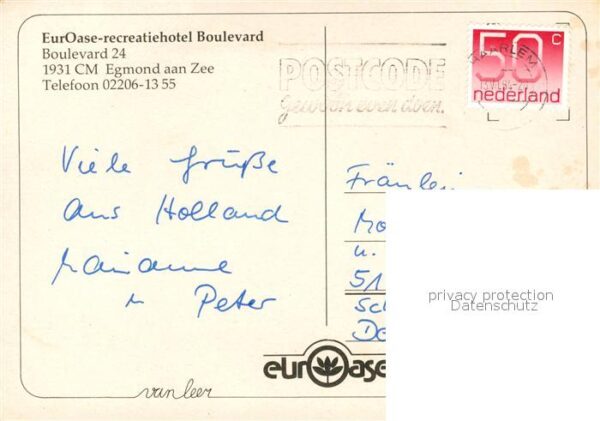 EurOase-recreatiehotel Boulevard
Boulevard 24
1931 CM Egmond aan Zee
Telefoon 02206-13 55
POSTCODE
gewoon even doen.
HAARLEM
50 c
nederland
Viele Grüße
aus Holland
Marianne
u. Peter
Fräulei
Mo
u.
51
Sc
De
privacy protection
Datenschutz
eurOase
van leer